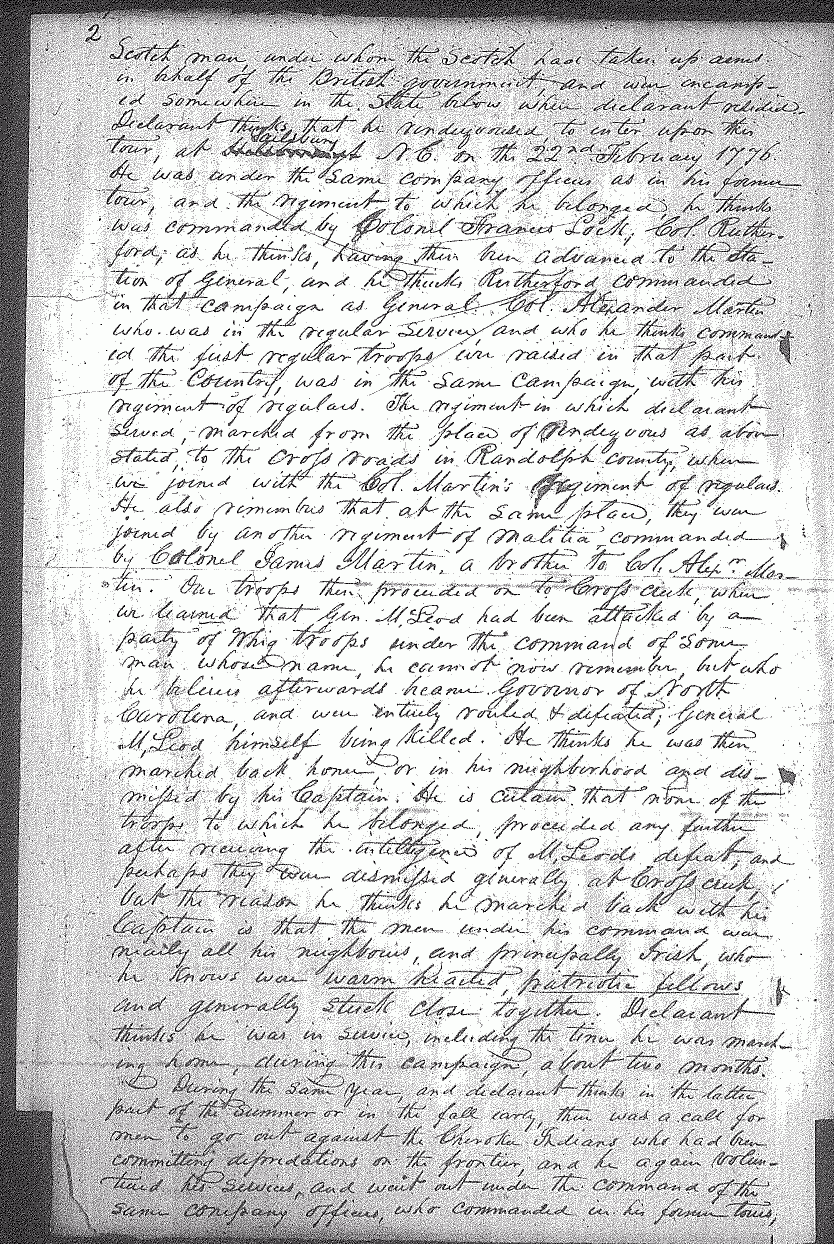 2
Scotch man, under whom the Scotch had taken up arms
in behalf of the British government, and were encamp-
ed somewhere in the State below where declarant resided.
Declarant thinks, that he rendezvoused to enter upon this
Sailsbury
tour, at N.C. on the 22nd February 1776.
He was under the same company officers as in his former
tour, and the regiment to which he belonged, he thinks
was commanded by Colonel Francis Lock; Col. Ruther-
ford, as he thinks, having then been advanced to the sta-
tion of General, and he thinks Rutherford commanded
in that campaign as General. Col. Alexander Martin
who was in the regular Service, and who he thinks command-
ed the first regular troops ever raised in that part
of the Country, was in the same campaign, with his
regiment of regulars. The regiment in which declarant
served, marched from the place of Rendezvous as above
stated, to the Cross roads in Randolph county, where
we joined with the Col. Martin's Regiment of regulars.
He also remembers that at the same place, they were
joined by another regiment of malitia, commanded
by Colonel James Martin, a brother to Col. Alexr. Mar-
tin. Our troops then proceeded on to Cross creek, where
we learned that Gen. M,Leod had been attacked by a
party of Whig troops under the command of some
man whose name, he cannot now remember, but who
he believes afterwards became Governor of North
Carolina, and were entirely routed & defeated; General
M,Leod himself being killed. He thinks he was then
marched back home, or in his neighborhood and dis-
missed by his Captain. He is certain that none of the
troops to which he belonged, proceeded any further
after receiving the intelligence of M,Leods defeat, and
perhaps they were dismissed generally at Cross creek,
but the reason he thinks he marched back with his
Captain is that the men under his command were
nearly all his neighbours, and principally Irish, who
he knows were warm hearted, patriotic fellows
and generally stuck close together. Declarant
thinks he was in service, including the time he was march-
ing home, during this campaign, about two months.
During the same year, and declarant thinks in the latter
part of the Summer or in the fall early, there was a call for
men to go out against the Cherokee Indians who had been
committing depredations on the frontier, and he again volun-
teered his services, and went out under the command of the
same company officers, who commanded in his former tours,